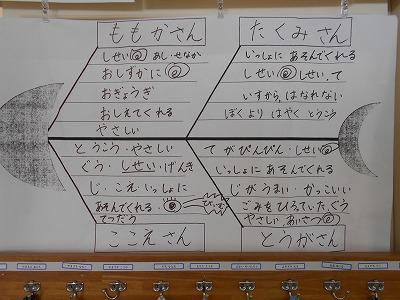 ももかさん
しせい◎ あし・せなか
おしずかに◎
おぎょうぎ
おしえてくれる
やさしい
たくみさん
いっしょに あそんでくれる
しせい◎ しせい、て
いすから、はなれない
ぼくより はやく とうこう
とうこう・やさしい
ぐう・しせい・げんき
じ・こえ いっしょに
あそんでくれる・
てつだう
ここえさん
てがぴんぴん・しせい◎
いっしょに あそんでくれる
じがうまい・かっこいい
ごみをひろっていた、ぐう
やさしい、あいさつ◎
とうがさん